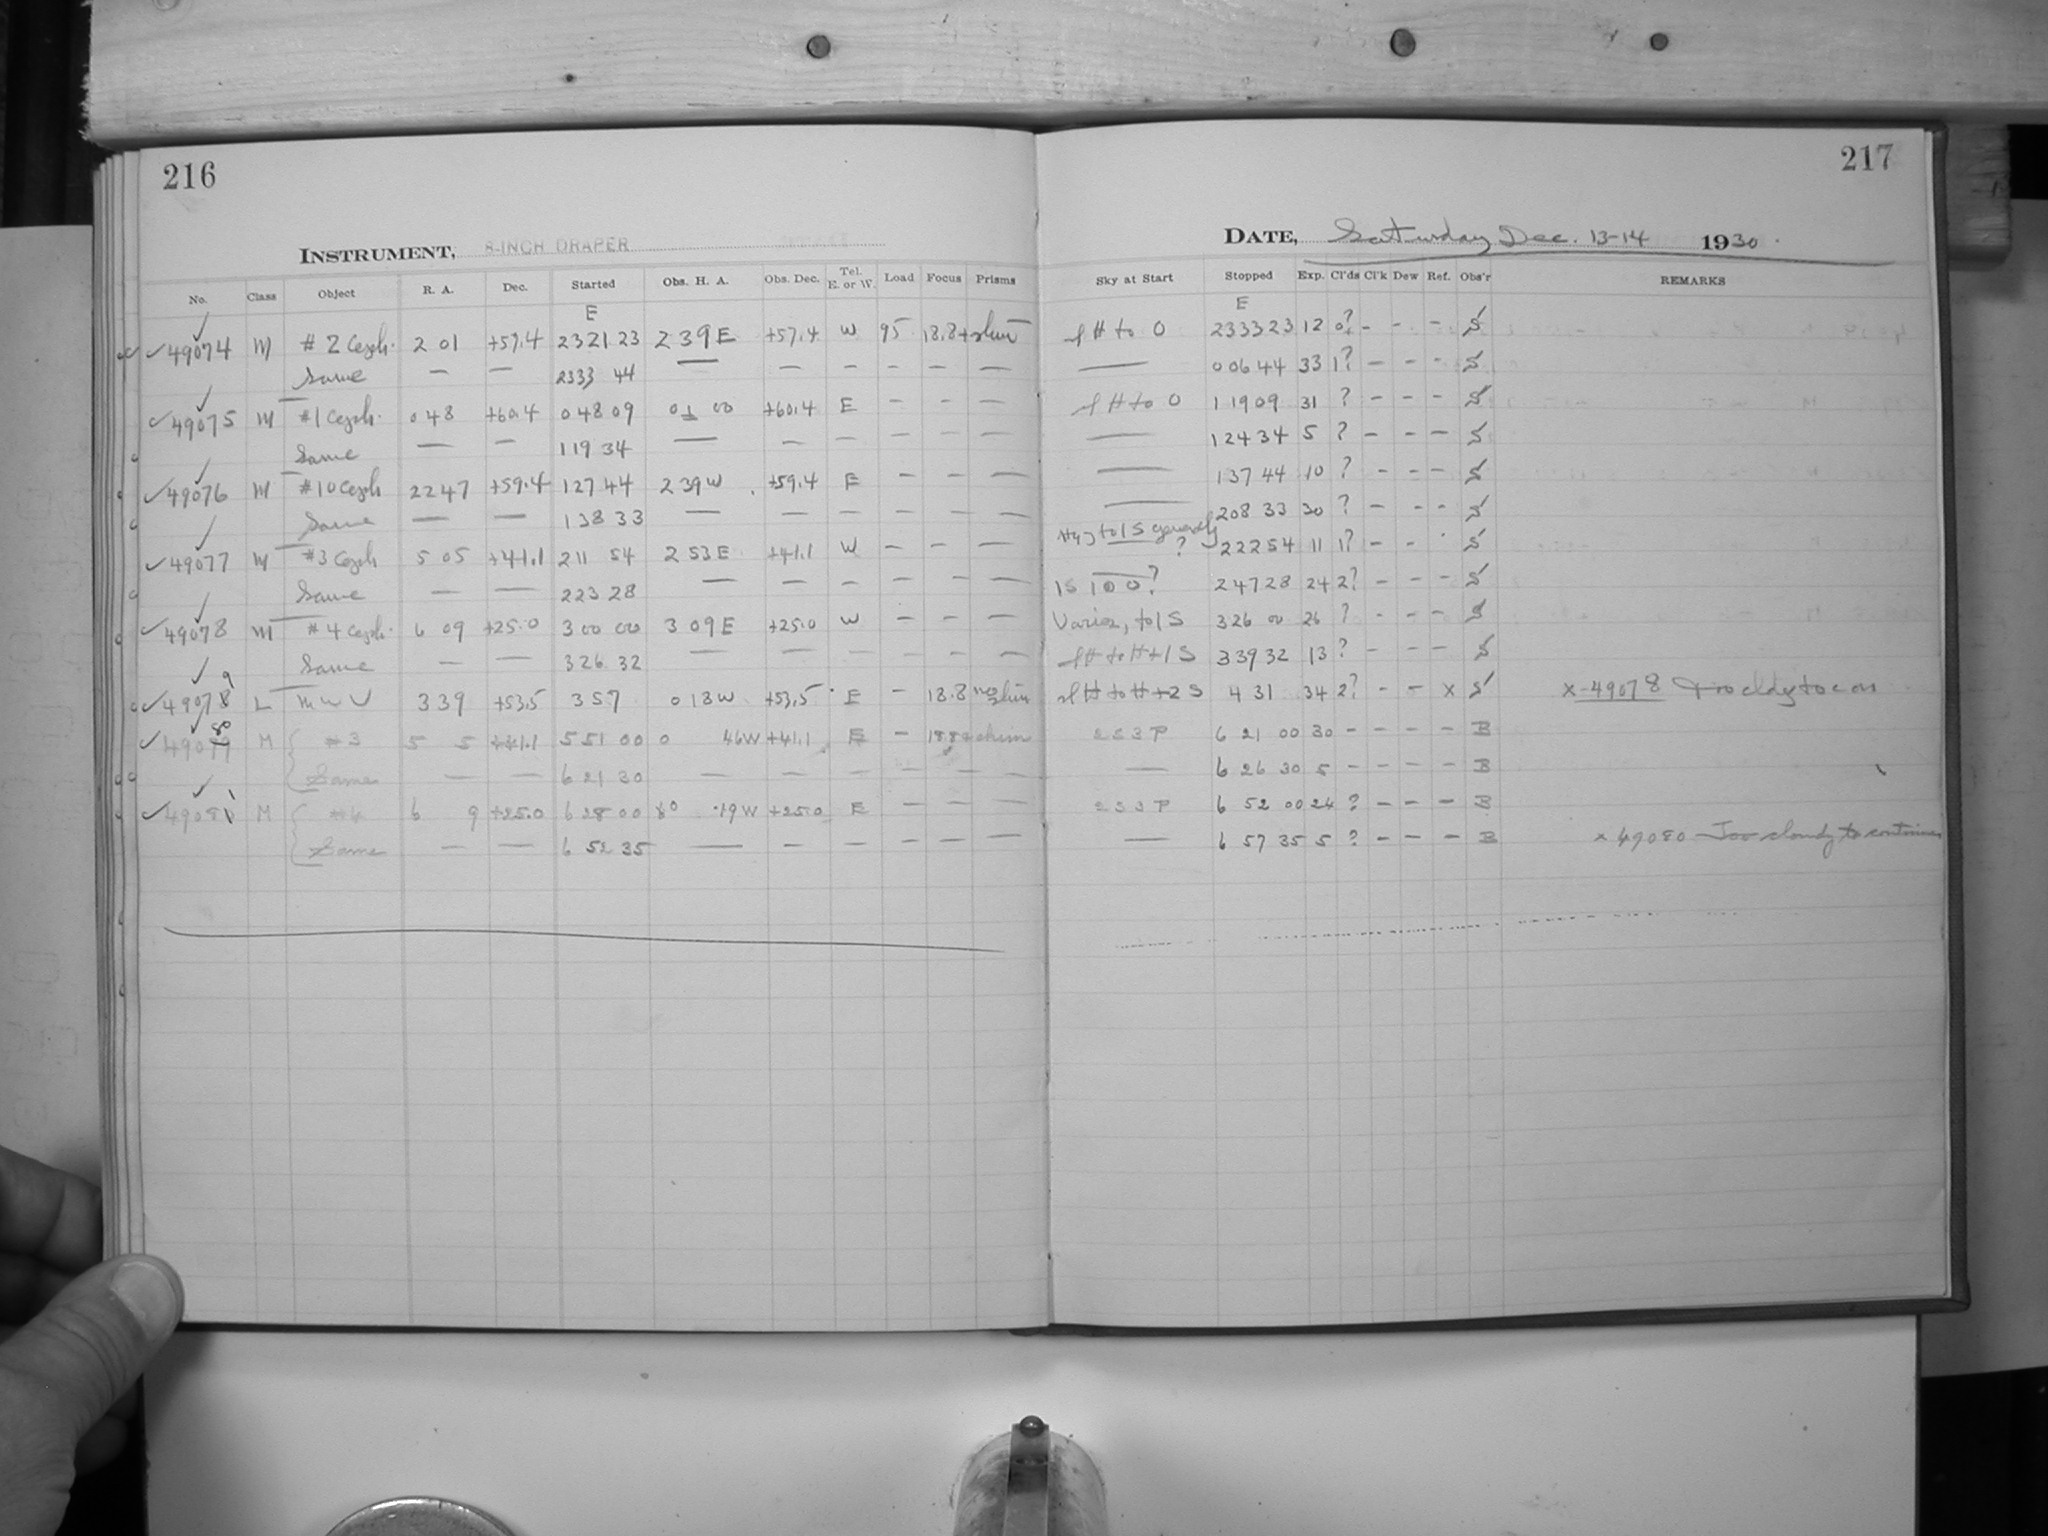 216
217
INSTRUMENT, 8-INCH DRAPER
DATE, Saturday Dec. 13-14 1930.
No. Class Object R. A. Dec. Started Obs. H. A. Obs. Dec. Tel. E. or W. Load Focus Prisms Sky at Start Stopped Exp. Cl'ds Cl'k Dew Ref. Obs'r REMARKS
E E
49074 M #2 Ceph. 2 01 +57.4 23 21 23 2 39 E +57.4 W 95 to 0 23 33 23 12 - - - S
Same — — 23 33 44 — — — — — — — 0 06 44 33 1? - - - S
49075 M #1 Ceph. 0 48 +60.4 0 48 09 00 +60.4 E - - — to 0 1 19 09 31 ? - - - S
Same — — 1 19 34 — — - - - — — 1 24 34 5 ? - - - S
49076 M #10 Ceph 22 47 +59.4 1 27 44 2 39 W +59.4 E - - — — 1 37 44 10 ? - - - S
Same — — 1 38 33 — — — - - - — — 2 08 33 30 ? - - - S
49077 M #3 Ceph 5 05 +41.1 2 11 54 2 53 E +41.1 W - - — to 1 S generally ? 2 22 54 11 1? - - S
Same — — 2 23 28 — — - - - — 1S ? 2 47 28 24 2? - - - S
49078 M #4 Ceph. 6 09 +25.0 3 00 00 3 09 E +25.0 W - - — Varies, to 1 S 3 26 00 26 ? - - - S
Same — — 3 26 32 — — — - - - — H to H+1 S 3 39 32 13 ? - - - S
49078 9 L MWV 3 39 +53.5 3 57 0 18 W +53.5 E - 18.8 no H to H+2 S 4 31 34 2? - - x S x-49078 too cldy to con
49079 80 M #3 5 5 +41.1 5 51 00 0 46 W +41.1 E - 2 S 3 P 6 21 00 30 - - - - B
Same — — 6 21 30 — — — - - - — — 6 26 30 5 - - - - B
4908 1 M 6 9 +25.0 6 28 00 19 W +25.0 E - - — 2 S 3 P 6 52 00 24 ? - - - B
Same — — 6 52 35 — — — - - - — — 6 57 35 5 ? - - - B x 49080 Too cloudy to continue